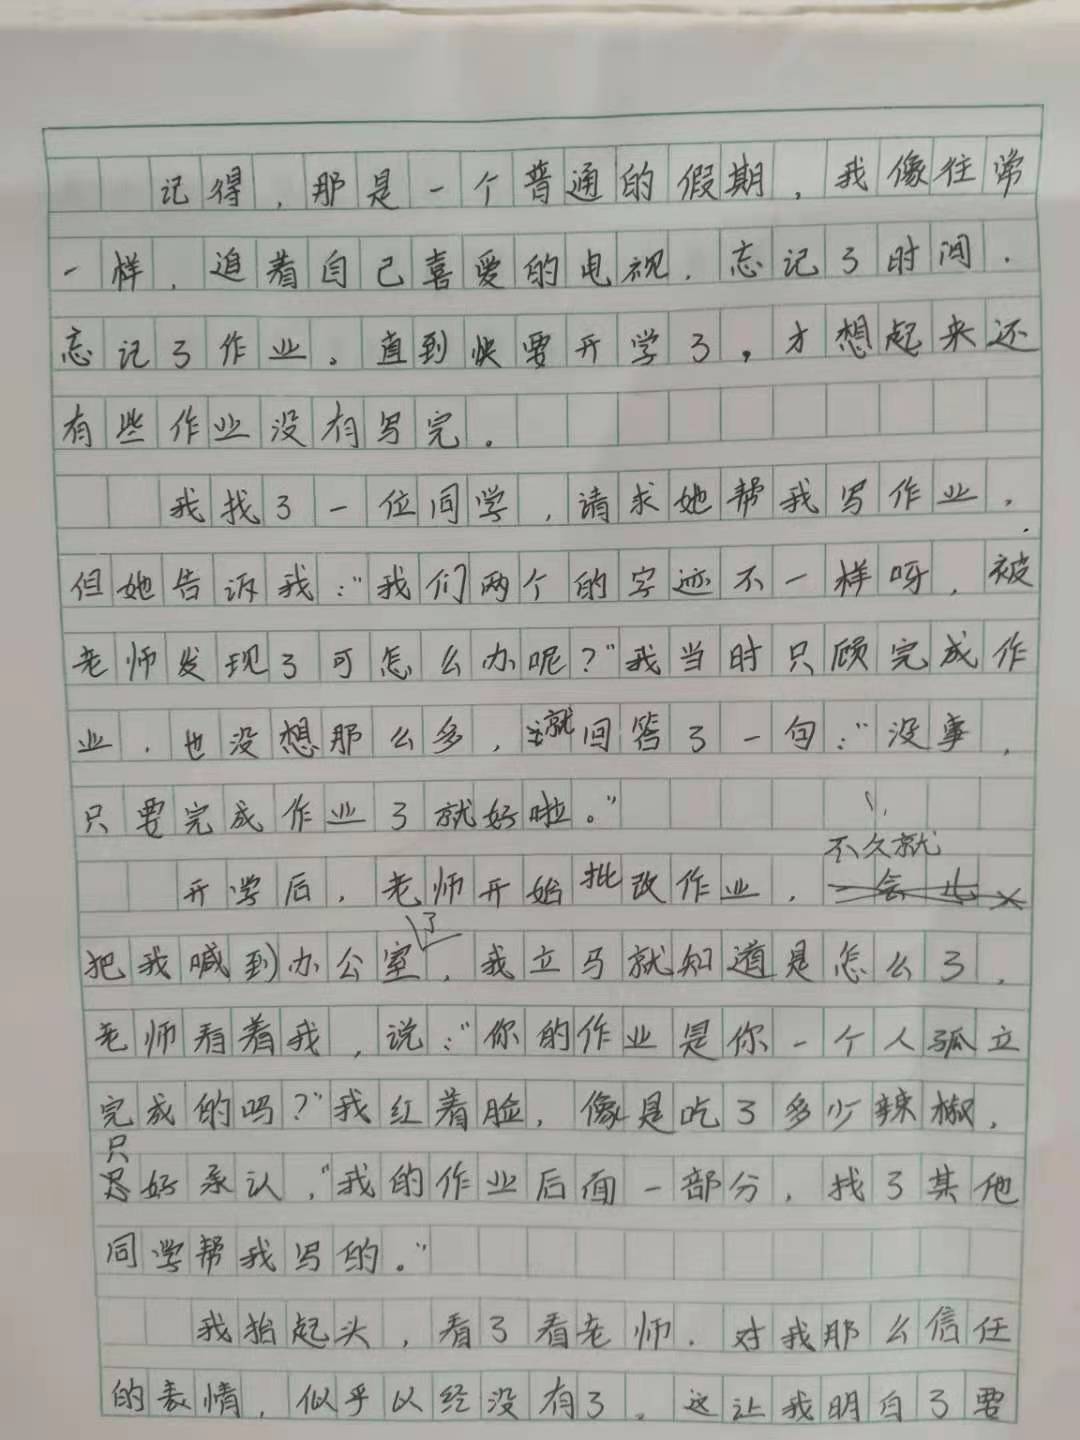 记得，那是一个普通的假期，我像往常
一样，追着自己喜爱的电视，忘记了时间，
忘记了作业。直到快要开学了，才想起来还
有些作业没有写完。
我找了一位同学，请求她帮我写作业，
但她告诉我：“我们两个的字迹不一样呀，被
老师发现了可怎么办呢？”我当时只顾完成作
业，也没想那么多，就回答了一句：“没事，
只要完成作业了就好啦。”
开学后，老师开始批改作业，不久就
把我喊到了办公室，我立马就知道是怎么了，
老师看着我，说：“你的作业是你一个人孤立
完成的吗？”我红着脸，像是吃了多少辣椒，
只好承认，“我的作业后面一部分，找了其他
同学帮我写的。”
我抬起头，看了看老师，对我那么信任
的表情，似乎以经没有了，这让我明白了要